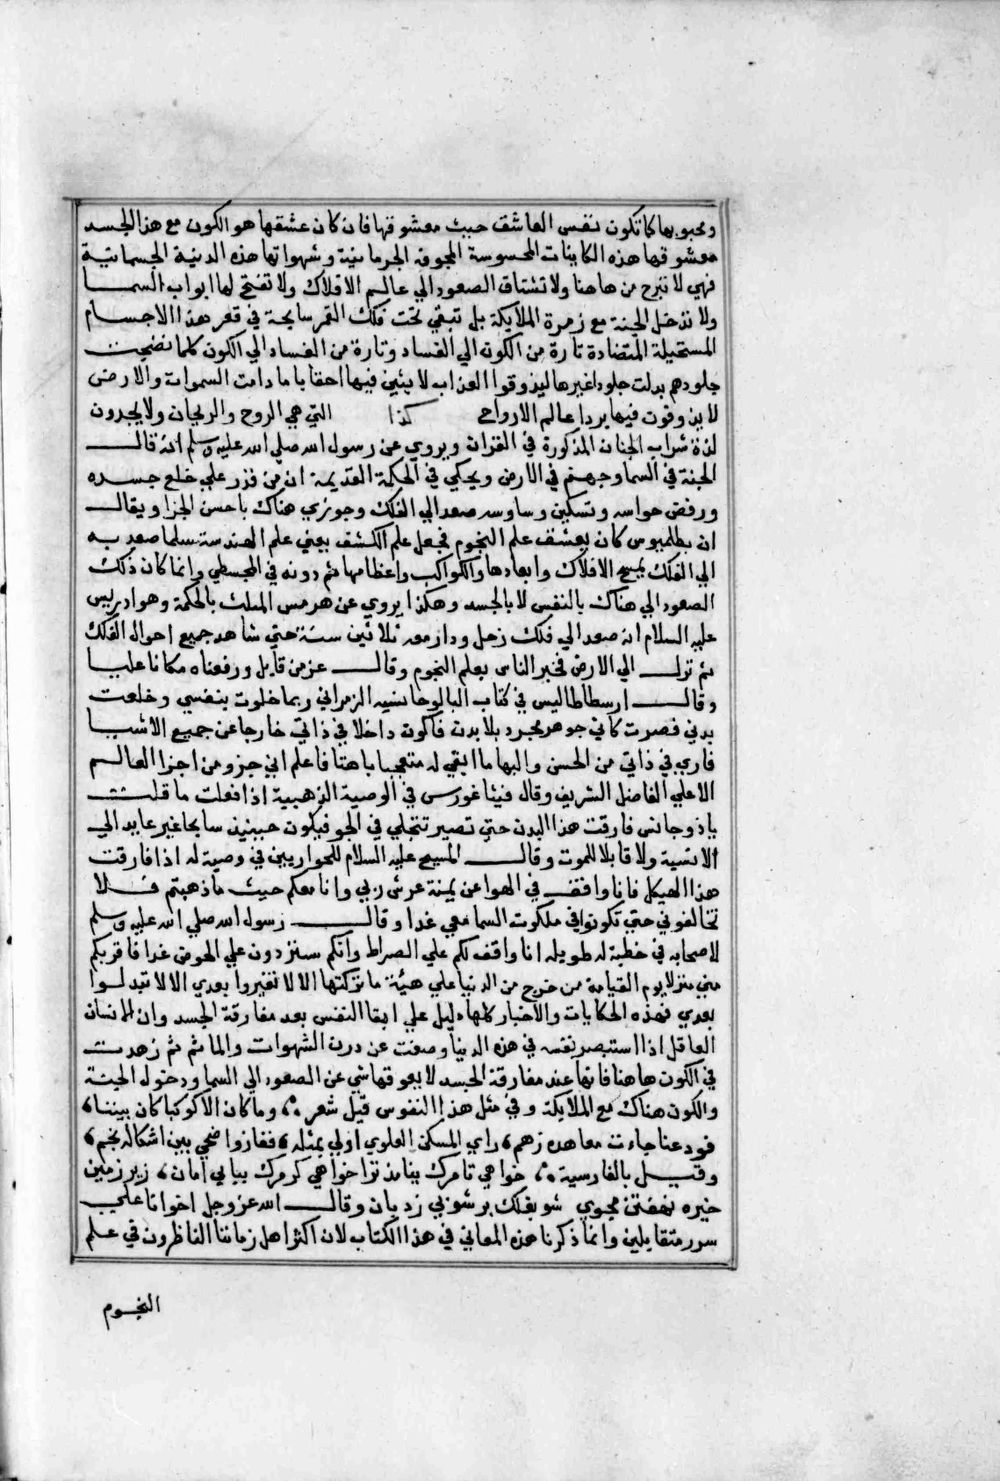 ومحبوبها كما تكون نفس العاشق حيث معشوقها فان كان عشقها هو الكون مع هذا الجسد
معشوقها هذه الكاينات المحسوسة المجوفة الجرمانية وشهواتها هذه الدنية الجسمانية
فهي لا تبرح من هاهنا ولا تشتاق الصعود الي عالم الافلاك ولا تفتح لها ابواب السما
ولا تدخل الجنة مع زمرة الملايكة بل تبقي تحت فلك القمر سايحة في قعر هذا الاجسام
المستحيلة المتضادة تارة من الكون الي الفساد وتارة من الفساد الي الكون كلما نضجت
جلودهم بدلت جلودا غيرها ليذوقوا العذاب لابثين فيها احقابا ما دامت السموات والارض
لا يذوقون فيها بردا عالم الارواح كذا التي هي الروح والريحان ولا يجدون
لذة شراب الجنان المذكورة في القران ويروي عن رسول الله صلي الله عليه وسلم انه قال
الجنة في السما وجهنم في الارض ويحكي في الحكمة القديمة ان من قدر علي خلع جسده
ورفض حواسه وتسكين وساوسه صعد الي الفلك وجوزي هناك باحسن الجزا ويقال
ان بطلميوس كان يعشق علم النجوم فجعل علم الكشف يعني علم الهندسة سلما صعد به
الي الفلك يمسح الافلاك وابعادها والكواكب واعظامها ثم دونه في المجسطي وانما كان ذلك
الصعود الي هناك بالنفس لا بالجسد وهكذا يروي عن هرمس المثلث بالحكمة وهو ادريس
عليه السلام انه صعد الي فلك زحل ودار معه ثلاثين سنة حتي شاهد جميع احوال الفلك
ثم نزل الي الارض فخبر الناس بعلم النجوم وقال عز من قايل ورفعناه مكانا عليا
وقال ارسطاطاليس في كتاب الزمراني ربما خلوت بنفسي وخلعت
بدني فصرت كاني جوهر مجرد بلا بدن فاكون داخلا في ذاتي خارجا عن جميع الاشيا
فاري في ذاتي من الحسن والبها ما ابقي له متعجبا باهتا فاعلم اني جزو من اجزا العالم
الاعلي الفاضل الشريف وقال فيثاغورس في الوصية الذهبية اذا فعلت ما قلت
ياذوجانس فارقت هذا البدن حتي تصير تتخلي في الجو فيكون حينيذ سايحا غير عايد الي
الانسية ولا قابلا للموت وقال المسيح عليه السلام للحواريين في وصية له اذا فارقت
هذا الهيكل فانا واقف في الهوا عن يمنة عرش ربي وانا معكم حيث ما ذهبتم فلا
تخالفوني حتي تكونوا في ملكوت السما معي غدا وقال رسول الله صلي الله عليه وسلم
لاصحابه في خطبة له طويله انا واقف لكم علي الصراط وانكم ستردون علي الحوض غدا فاقربكم
مني منزلا يوم القيامة من خرج من الدنيا علي هيئة ما تركتها الا لا تغيروا بعدي الا لا تبدلوا
بعدي فهذه الحكايات والاخبار كلها دليل علي ابقا النفس بعد مفارقة الجسد وان الانسان
العاقل اذا استبصر نفسه في هذه الدنيا وصفت عن درن الشهوات والماثم ثم زهدت
في الكون هاهنا فانها عند مفارقة الجسد لا يعوقها شي عن الصعود الي السما ودخول الجنة
والكون هناك مع الملايكة وفي مثل هذا النفوس قيل شعر وما كان الا كوكبا كان بيننا،
فودعنا جادت معاهده زهم، راي المسكن العلوي اولي بمثله، ففاز واضحي بين اشكاله نجم،
وقيل بالفارسية خواهي تا مرك نيابد ترا خواهي كز مرك بيابي امان، زير زمين
خيره نهفتن مجوي شو بفلك بر شو بي زدبان وقال الله عز وجل اخوانا علي
سرر متقابلين وانما ذكرنا هذه المعاني في هذا الكتاب لان اكثر اهل زماننا الناظرون في علم
النجوم